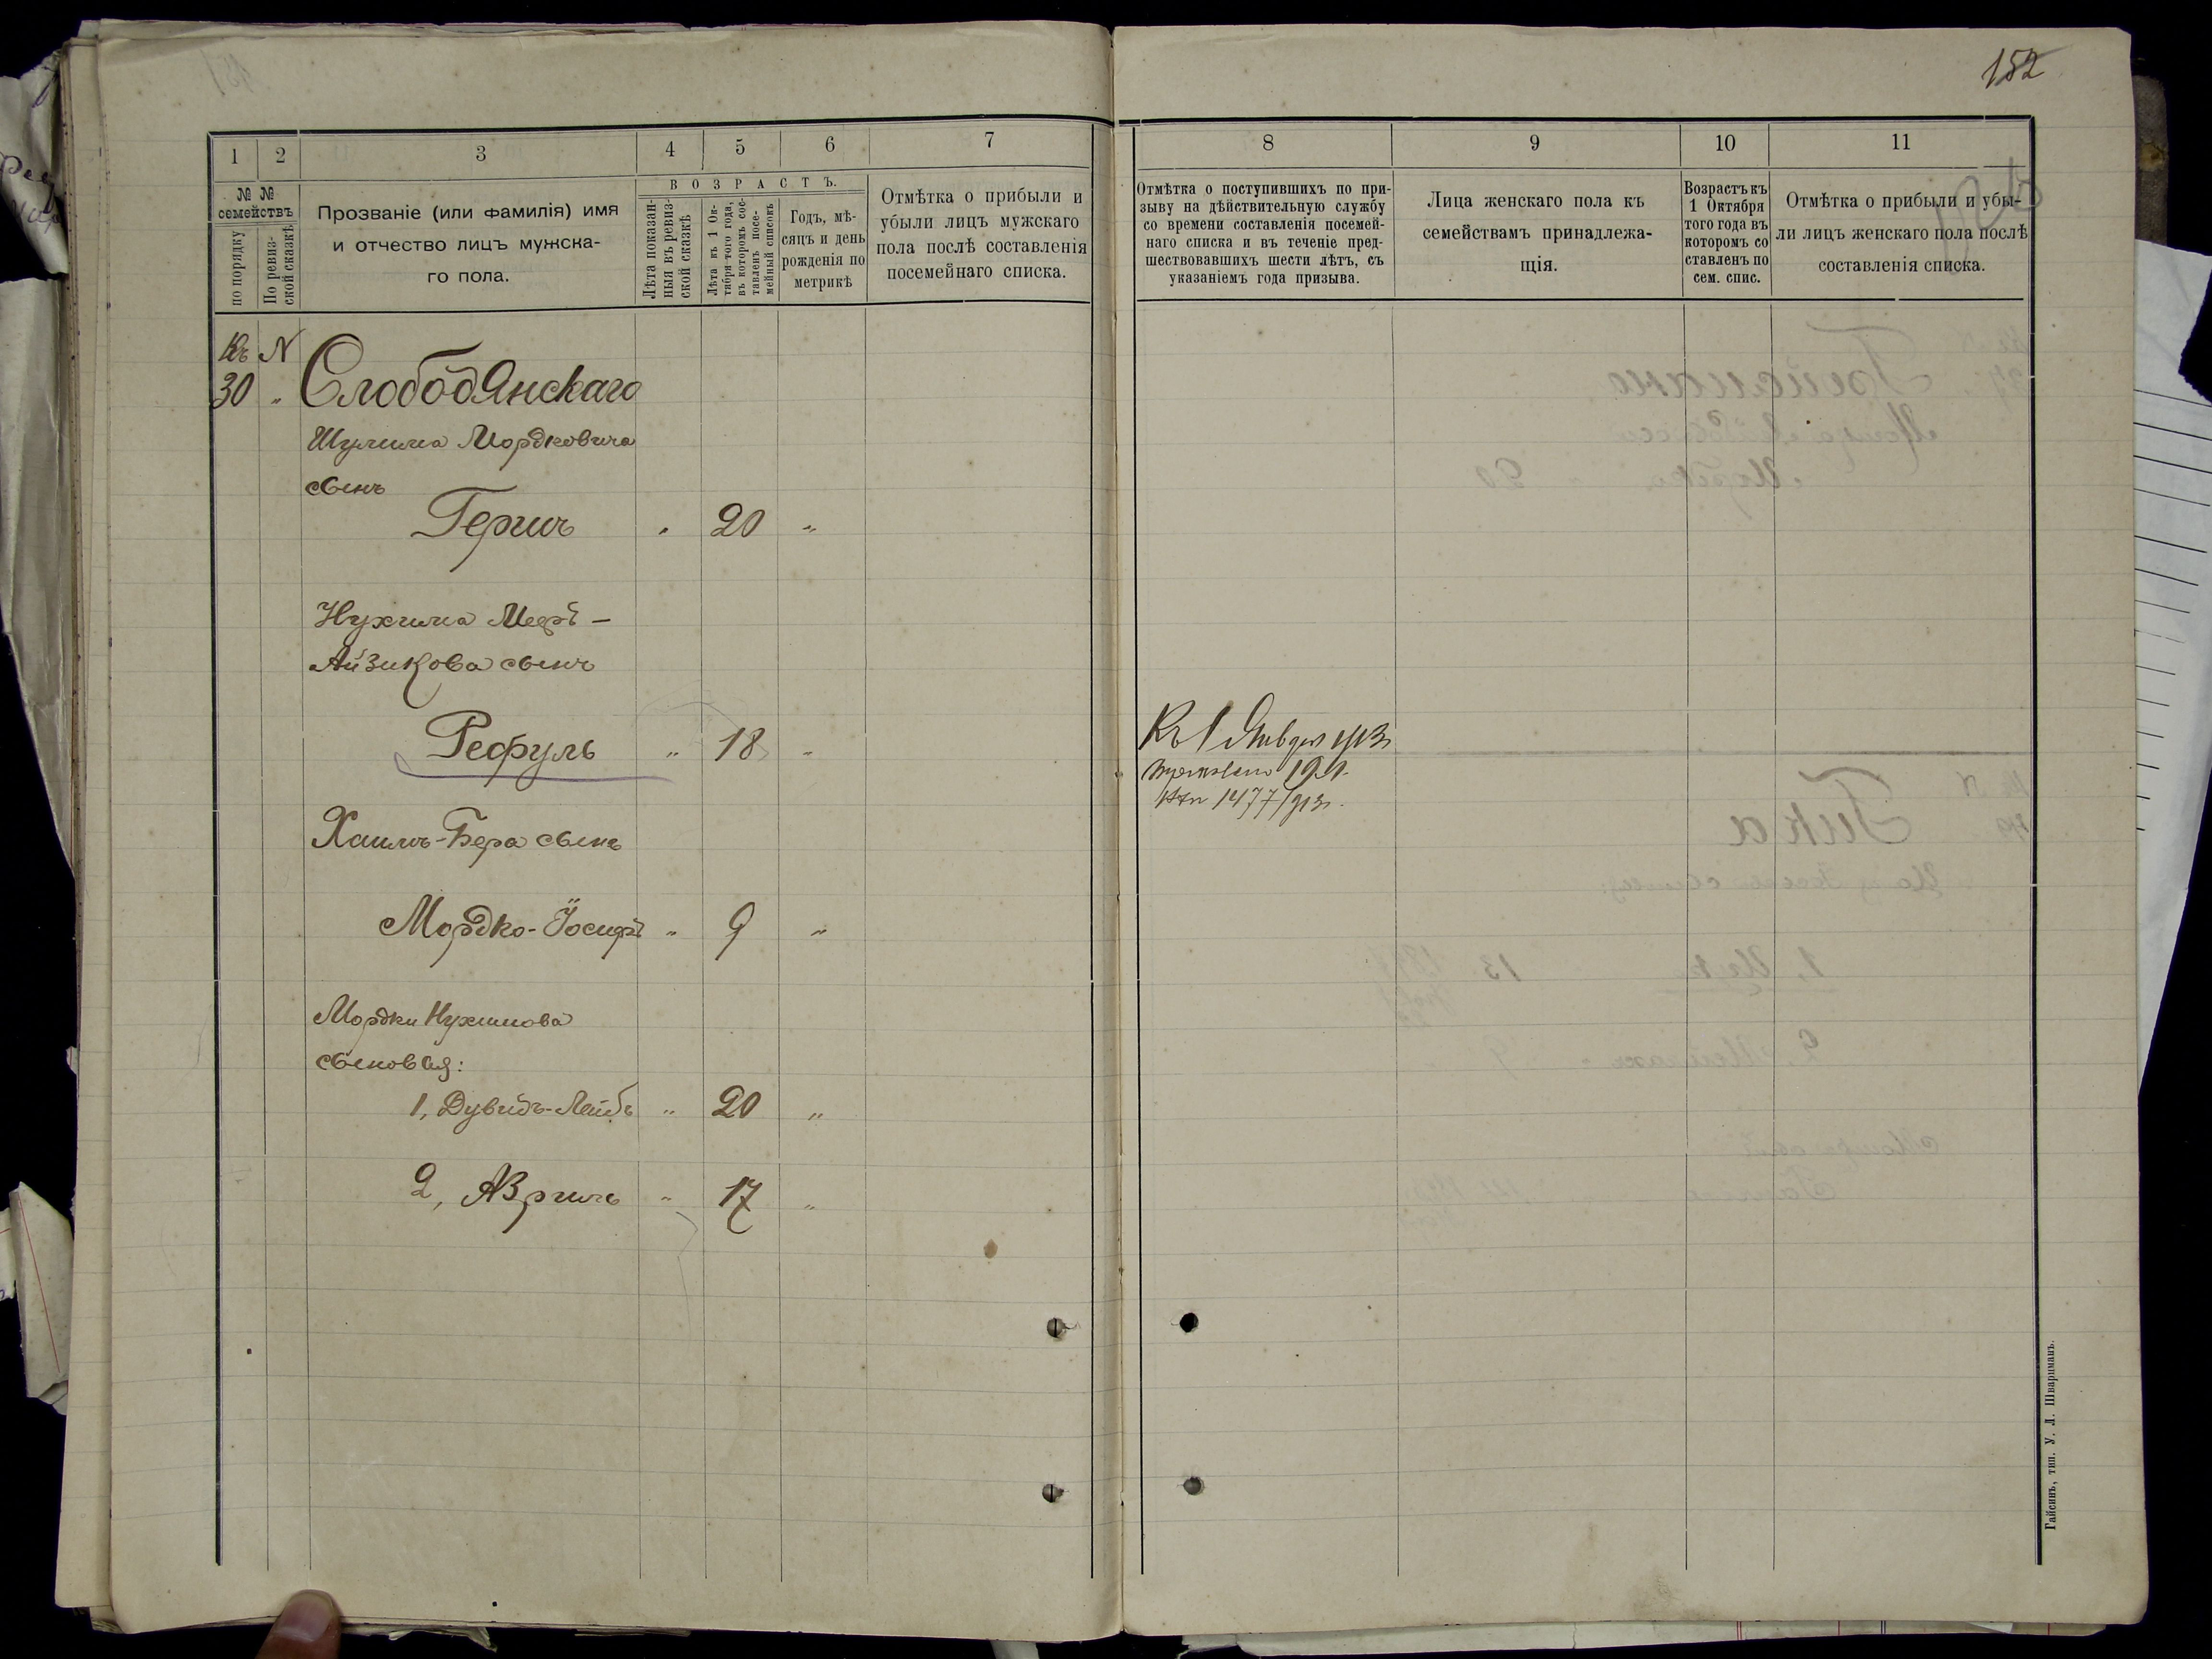 152
1 2 3 4 5 6 7 8 9 10 11
№ № семействъ
по порядку
По ревизской сказкѣ
Прозваніе (или фамилія) имя
и отчество лицъ мужска-
го пола.
ВОЗРАСТЪ.
Лѣта показан-
ныя въ ревиз-
ской сказкѣ
Лѣта къ 1 Ок-
тября того года,
въ которомъ сос-
тавленъ посе-
мейный списокъ
Годъ, мѣ-
сяцъ и день
рожденія по
метрикѣ
Отмѣтка о прибыли и
убыли лицъ мужскаго
пола послѣ составленія
посемейнаго списка.
Отмѣтка о поступившихъ по при-
зыву на дѣйствительную службу
со времени составленія посемей-
наго списка и въ теченіе пред-
шествовавшихъ шести лѣтъ, съ
указаніемъ года призыва.
Лица женскаго пола къ
семействамъ принадлежа-
щія.
Возрастъ къ
1 Октября
того года въ
которомъ со
ставленъ по
сем. спис.
Отмѣтка о прибыли и убы-
ли лицъ женскаго пола послѣ
составленія списка.
Къ N
30 " Слободянскаго
Шулима Мордковича
сынъ
Гершъ " 20 "
Нухима Мееръ-
Айзикова сынъ
Рефуль " 18 "
Къ 1 Января 1913
1477/913
Хаимъ-Бера сынъ
Мордко-Іосифъ " 9 "
Мордки Нухимова
сыновья:
1, Дувидъ-Лейбъ " 20 "
2, Аврумъ " 17 "
Гайсинъ, тип. У. Л. Шварцманъ.